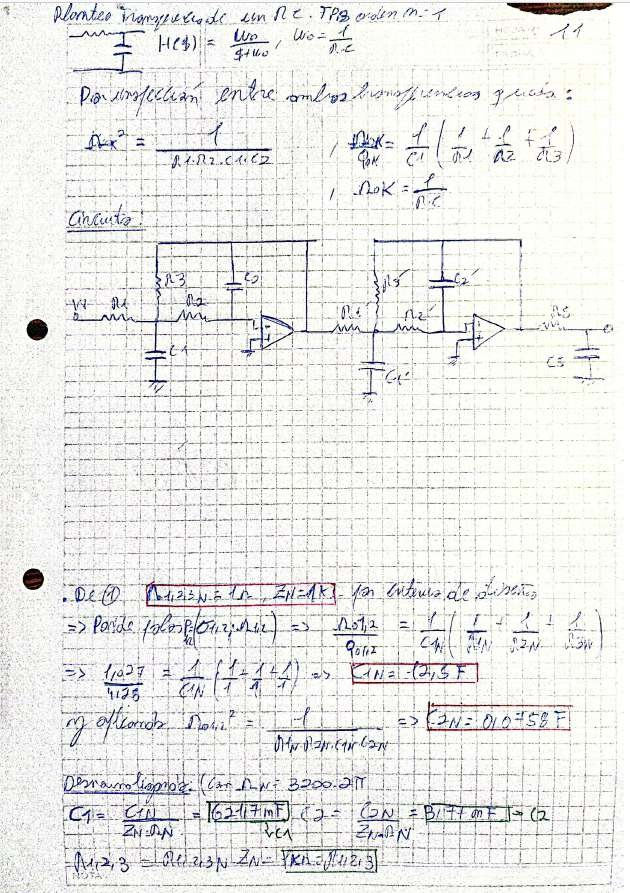 Planteo transferencia de un R C. TPB orden n=1
11
H($) = ω0 / $+ω0 , ω0 = 1 / R.C
Por inspección entre ambas transferencias quedó:
Ωok² = 1 / R1.R2.C1.C2 , Ωok / qok = 1/C1 ( 1/R1 + 1/R2 + 1/R3 )
, Ωok = 1 / R.C
Circuito:
R3 C2 R3' C2'
R1 R2 R1' R2' R5
C1 C1' C5
. De ① R1,2,3N = 1Ω , ZN = 1KΩ por criterio de diseño
=> Par de polos => Ω01,2 / q01,2 = 1/C1N ( 1/R1N + 1/R2N + 1/R3N )
=> 1,027 / 4,125 = 1/C1N ( 1/1 + 1/1 + 1/1 ) => C1N = 12,5 F
Ω01,2² = 1 / R1N.R2N.C1N.C2N => C2N = 0,0758 F
Desnormalizando: Con ΩN = 3200.2π
C1 = C1N / ZN.ΩN = 621,7 mF C2 = C2N / ZN.ΩN = 3,77 mF C2
C1
R1,2,3 = R1,2,3N ZN = 1KΩ = R1,2,3
NOTA